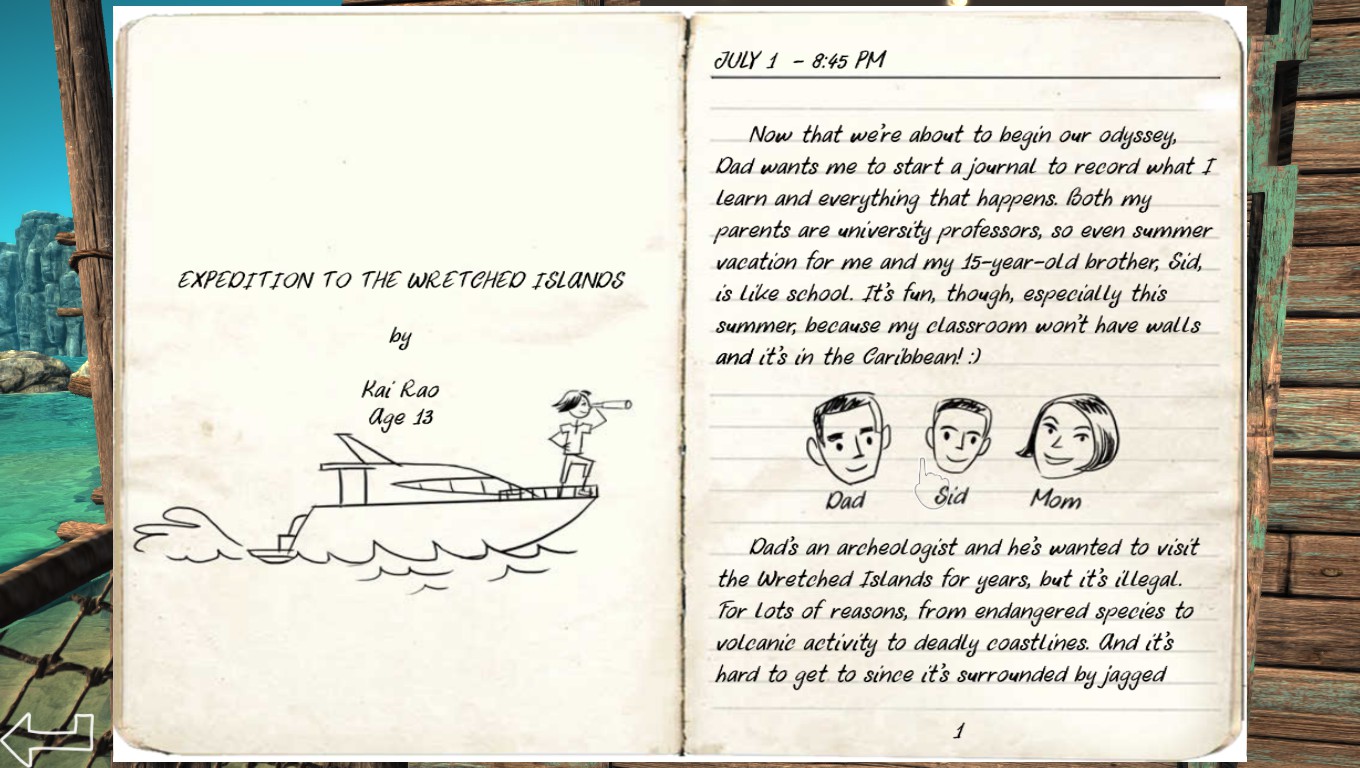 EXPEDITION TO THE WRETCHED ISLANDS
by
Kai Rao
Age 13
JULY 1 - 8:45 PM
Now that we're about to begin our odyssey,
Dad wants me to start a journal to record what I
learn and everything that happens. Both my
parents are university professors, so even summer
vacation for me and my 15-year-old brother, Sid,
is like school. It's fun, though, especially this
summer, because my classroom won't have walls
and it's in the Caribbean! :)
Dad Sid Mom
Dad's an archeologist and he's wanted to visit
the Wretched Islands for years, but it's illegal.
For lots of reasons, from endangered species to
volcanic activity to deadly coastlines. And it's
hard to get to since it's surrounded by jagged
1